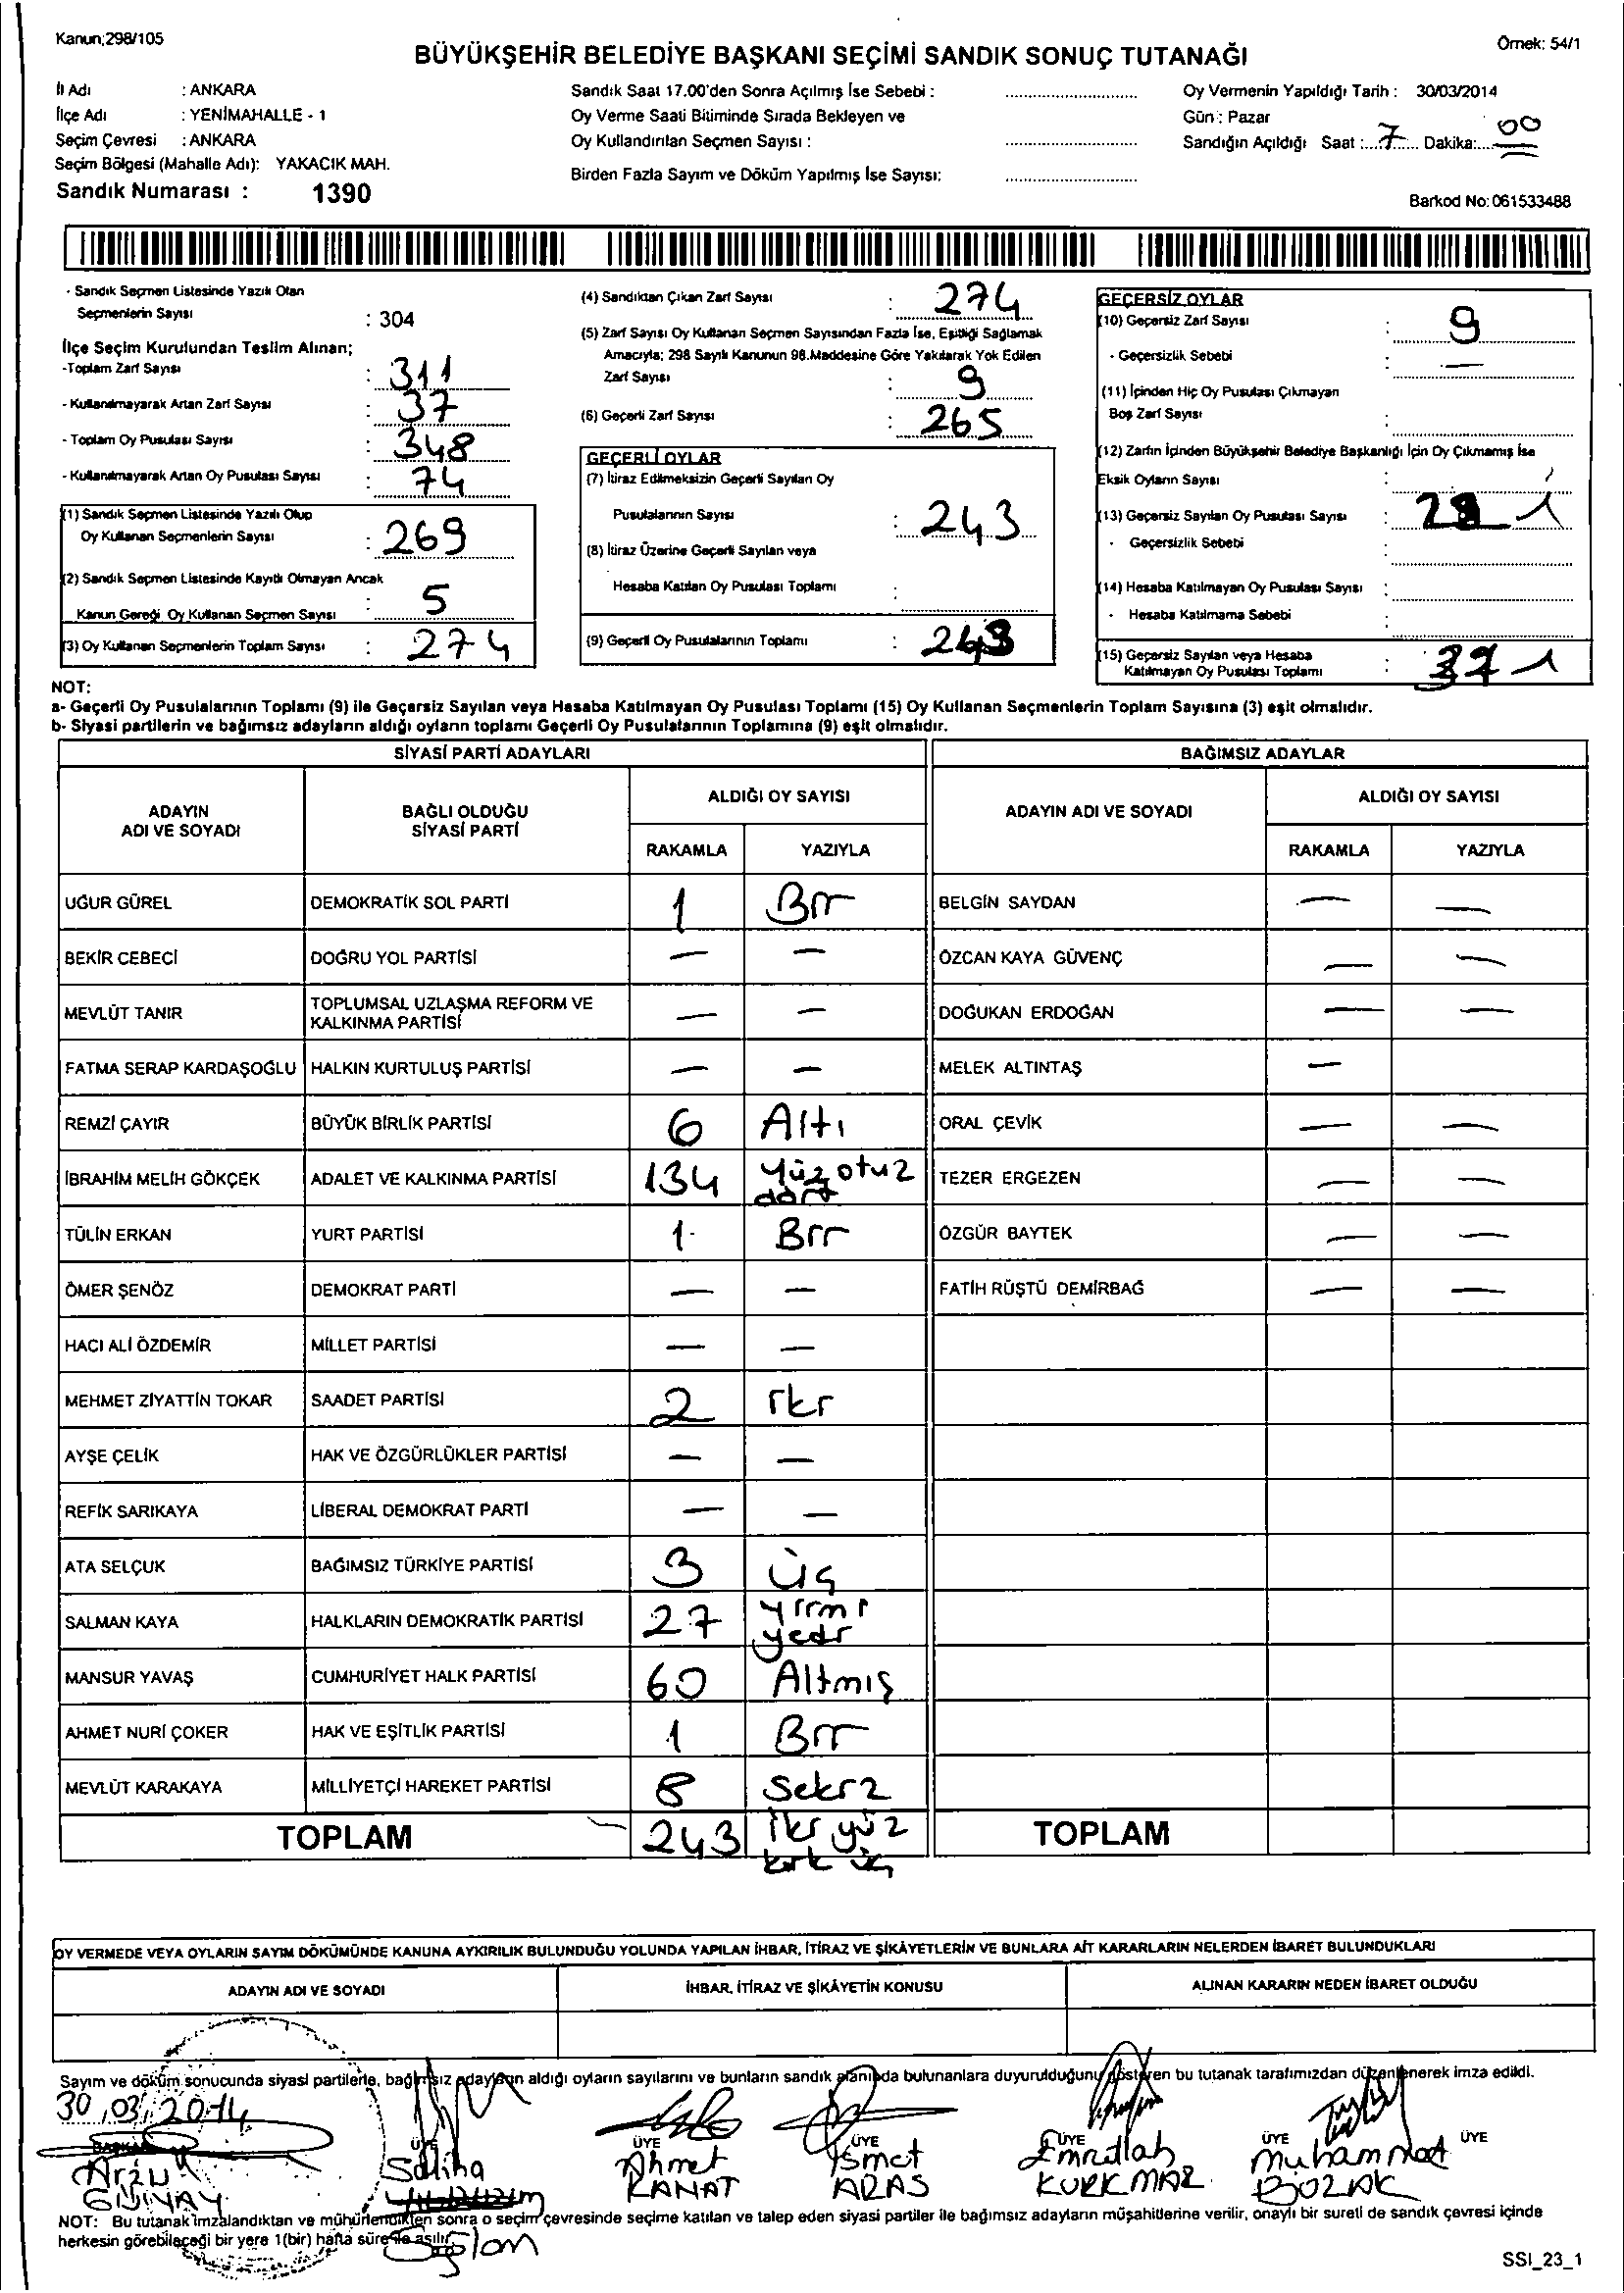 Kanun;298/105
BÜYÜKŞEHİR BELEDİYE BAŞKANI SEÇİMİ SANDIK SONUÇ TUTANAĞI
Örnek: 54/1
İl Adı : ANKARA
İlçe Adı : YENİMAHALLE - 1
Seçim Çevresi : ANKARA
Seçim Bölgesi (Mahalle Adı): YAKACIK MAH.
Sandık Numarası : 1390
Sandık Saat 17.00'den Sonra Açılmış İse Sebebi :
Oy Verme Saati Bitiminde Sırada Bekleyen ve
Oy Kullandırılan Seçmen Sayısı :
Birden Fazla Sayım ve Döküm Yapılmış İse Sayısı:
Oy Vermenin Yapıldığı Tarih : 30/03/2014
Gün : Pazar
Sandığın Açıldığı Saat : 7 Dakika: 00
Barkod No: 061533488
- Sandık Seçmen Listesinde Yazılı Olan
Seçmenlerin Sayısı : 304
İlçe Seçim Kurulundan Teslim Alınan;
-Toplam Zarf Sayısı : 311
- Kullanılmayarak Artan Zarf Sayısı : 37
- Toplam Oy Pusulası Sayısı : 348
- Kullanılmayarak Artan Oy Pusulası Sayısı : 74
(1) Sandık Seçmen Listesinde Yazılı Olup
Oy Kullanan Seçmenlerin Sayısı : 269
(2) Sandık Seçmen Listesinde Kayıtlı Olmayan Ancak
Kanun Gereği Oy Kullanan Seçmen Sayısı : 5
(3) Oy Kullanan Seçmenlerin Toplam Sayısı : 274
(4) Sandıktan Çıkan Zarf Sayısı : 274
(5) Zarf Sayısı Oy Kullanan Seçmen Sayısından Fazla İse, Eşitliği Sağlamak
Amacıyla; 298 Sayılı Kanunun 98.Maddesine Göre Yakılarak Yok Edilen
Zarf Sayısı : 9
(6) Geçerli Zarf Sayısı : 265
GEÇERLİ OYLAR
(7) İtiraz Edilmeksizin Geçerli Sayılan Oy
Pusulalarının Sayısı : 243
(8) İtiraz Üzerine Geçerli Sayılan veya
Hesaba Katılan Oy Pusulası Toplamı :
(9) Geçerli Oy Pusulalarının Toplamı : 243
GEÇERSİZ OYLAR
(10) Geçersiz Zarf Sayısı : 9
- Geçersizlik Sebebi : —
(11) İçinden Hiç Oy Pusulası Çıkmayan
Boş Zarf Sayısı :
(12) Zarfın İçinden Büyükşehir Belediye Başkanlığı İçin Oy Çıkmamış İse
Eksik Oyların Sayısı :
(13) Geçersiz Sayılan Oy Pusulası Sayısı :
- Geçersizlik Sebebi :
(14) Hesaba Katılmayan Oy Pusulası Sayısı :
- Hesaba Katılmama Sebebi :
(15) Geçersiz Sayılan veya Hesaba
Katılmayan Oy Pusulası Toplamı :
NOT:
a- Geçerli Oy Pusulalarının Toplamı (9) ile Geçersiz Sayılan veya Hesaba Katılmayan Oy Pusulası Toplamı (15) Oy Kullanan Seçmenlerin Toplam Sayısına (3) eşit olmalıdır.
b- Siyasi partilerin ve bağımsız adayların aldığı oyların toplamı Geçerli Oy Pusulalarının Toplamına (9) eşit olmalıdır.
SİYASİ PARTİ ADAYLARI
BAĞIMSIZ ADAYLAR
ADAYIN ADI VE SOYADI
BAĞLI OLDUĞU SİYASİ PARTİ
ALDIĞI OY SAYISI
RAKAMLA YAZIYLA
ADAYIN ADI VE SOYADI
ALDIĞI OY SAYISI
RAKAMLA YAZIYLA
UĞUR GÜREL DEMOKRATİK SOL PARTİ 1 Bir BELGİN SAYDAN — —
BEKİR CEBECİ DOĞRU YOL PARTİSİ — — ÖZCAN KAYA GÜVENÇ — —
MEVLÜT TANIR TOPLUMSAL UZLAŞMA REFORM VE KALKINMA PARTİSİ — — DOĞUKAN ERDOĞAN — —
FATMA SERAP KARDAŞOĞLU HALKIN KURTULUŞ PARTİSİ — — MELEK ALTINTAŞ —
REMZİ ÇAYIR BÜYÜK BİRLİK PARTİSİ 6 Altı ORAL ÇEVİK — —
İBRAHİM MELİH GÖKÇEK ADALET VE KALKINMA PARTİSİ 134 yüzotuz dört TEZER ERGEZEN — —
TÜLİN ERKAN YURT PARTİSİ 1 Bir ÖZGÜR BAYTEK — —
ÖMER ŞENÖZ DEMOKRAT PARTİ — — FATİH RÜŞTÜ DEMİRBAĞ — —
HACI ALİ ÖZDEMİR MİLLET PARTİSİ — —
MEHMET ZİYATTİN TOKAR SAADET PARTİSİ 2 iki
AYŞE ÇELİK HAK VE ÖZGÜRLÜKLER PARTİSİ — —
REFİK SARIKAYA LİBERAL DEMOKRAT PARTİ — —
ATA SELÇUK BAĞIMSIZ TÜRKİYE PARTİSİ 3 üç
SALMAN KAYA HALKLARIN DEMOKRATİK PARTİSİ 27 yirmi yedi
MANSUR YAVAŞ CUMHURİYET HALK PARTİSİ 60 Altmış
AHMET NURİ ÇOKER HAK VE EŞİTLİK PARTİSİ 1 Bir
MEVLÜT KARAKAYA MİLLİYETÇİ HAREKET PARTİSİ 8 sekiz
TOPLAM 243 iki yüz kırk üç TOPLAM
OY VERMEDE VEYA OYLARIN SAYIM DÖKÜMÜNDE KANUNA AYKIRILIK BULUNDUĞU YOLUNDA YAPILAN İHBAR, İTİRAZ VE ŞİKÂYETLERİN VE BUNLARA AİT KARARLARIN NELERDEN İBARET BULUNDUKLARI
ADAYIN ADI VE SOYADI İHBAR, İTİRAZ VE ŞİKÂYETİN KONUSU ALINAN KARARIN NEDEN İBARET OLDUĞU
Sayım ve döküm sonucunda siyasi partilerle, bağımsız adayların aldığı oyların sayılarını ve bunların sandık alanında bulunanlara duyurulduğunu gösteren bu tutanak tarafımızdan düzenlenerek imza edildi.
30/03/2014
BAŞKAN ÜYE ÜYE ÜYE ÜYE ÜYE ÜYE
Arzu Saliha Ahmet İsmet Emrullah Muhammet
GÜNAY KANAT ARAS KORKMAZ BOZAK
NOT: Bu tutanak imzalandıktan ve mühürlendikten sonra o seçim çevresinde seçime katılan ve talep eden siyasi partiler ile bağımsız adayların müşahitlerine verilir, onaylı bir sureti de sandık çevresi içinde
herkesin görebileceği bir yere 1(bir) hafta süre ile asılır.
SSI_23_1